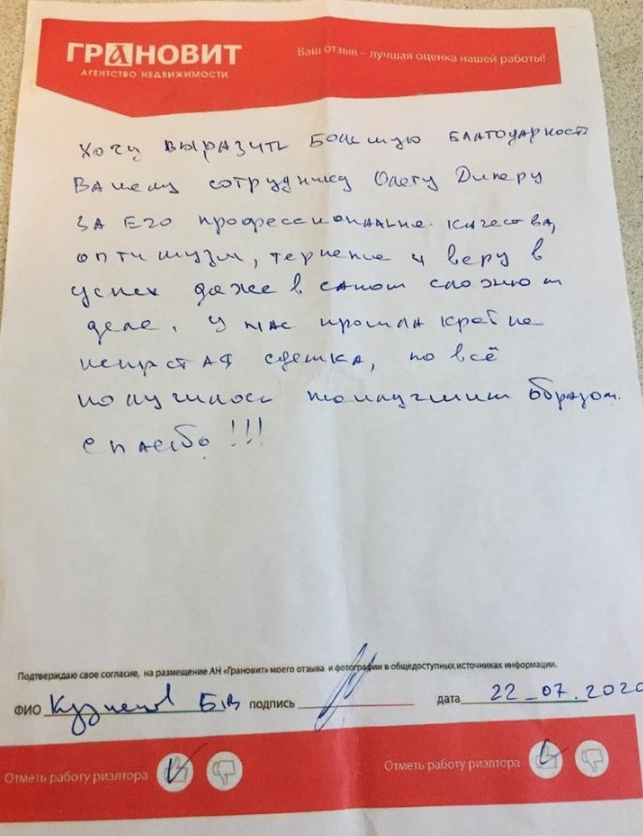 ГРАНОВИТ
АГЕНТСТВО НЕДВИЖИМОСТИ
Ваш отзыв – лучшая оценка нашей работы!
Хочу выразить большую благодарность
Вашему сотруднику Олегу Дилеру
за его профессиональные качества,
оптимизм, терпение и веру в
успех даже в самом сложном
деле. У нас прошла крайне
непростая сделка, но всё
получилось наилучшим образом.
Спасибо!!!
Подтверждаю свое согласие, на размещение АН «Грановит» моего отзыва и фотографии в общедоступных источниках информации.
ФИО Кузнецов Б.В подпись дата 22_07.2020
Отметь работу риэлтора Отметь работу риэлтора